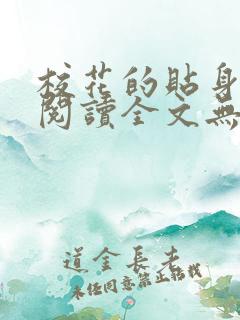 校花的貼身
閱讀全文無
道金長老
未経同意禁止轉載